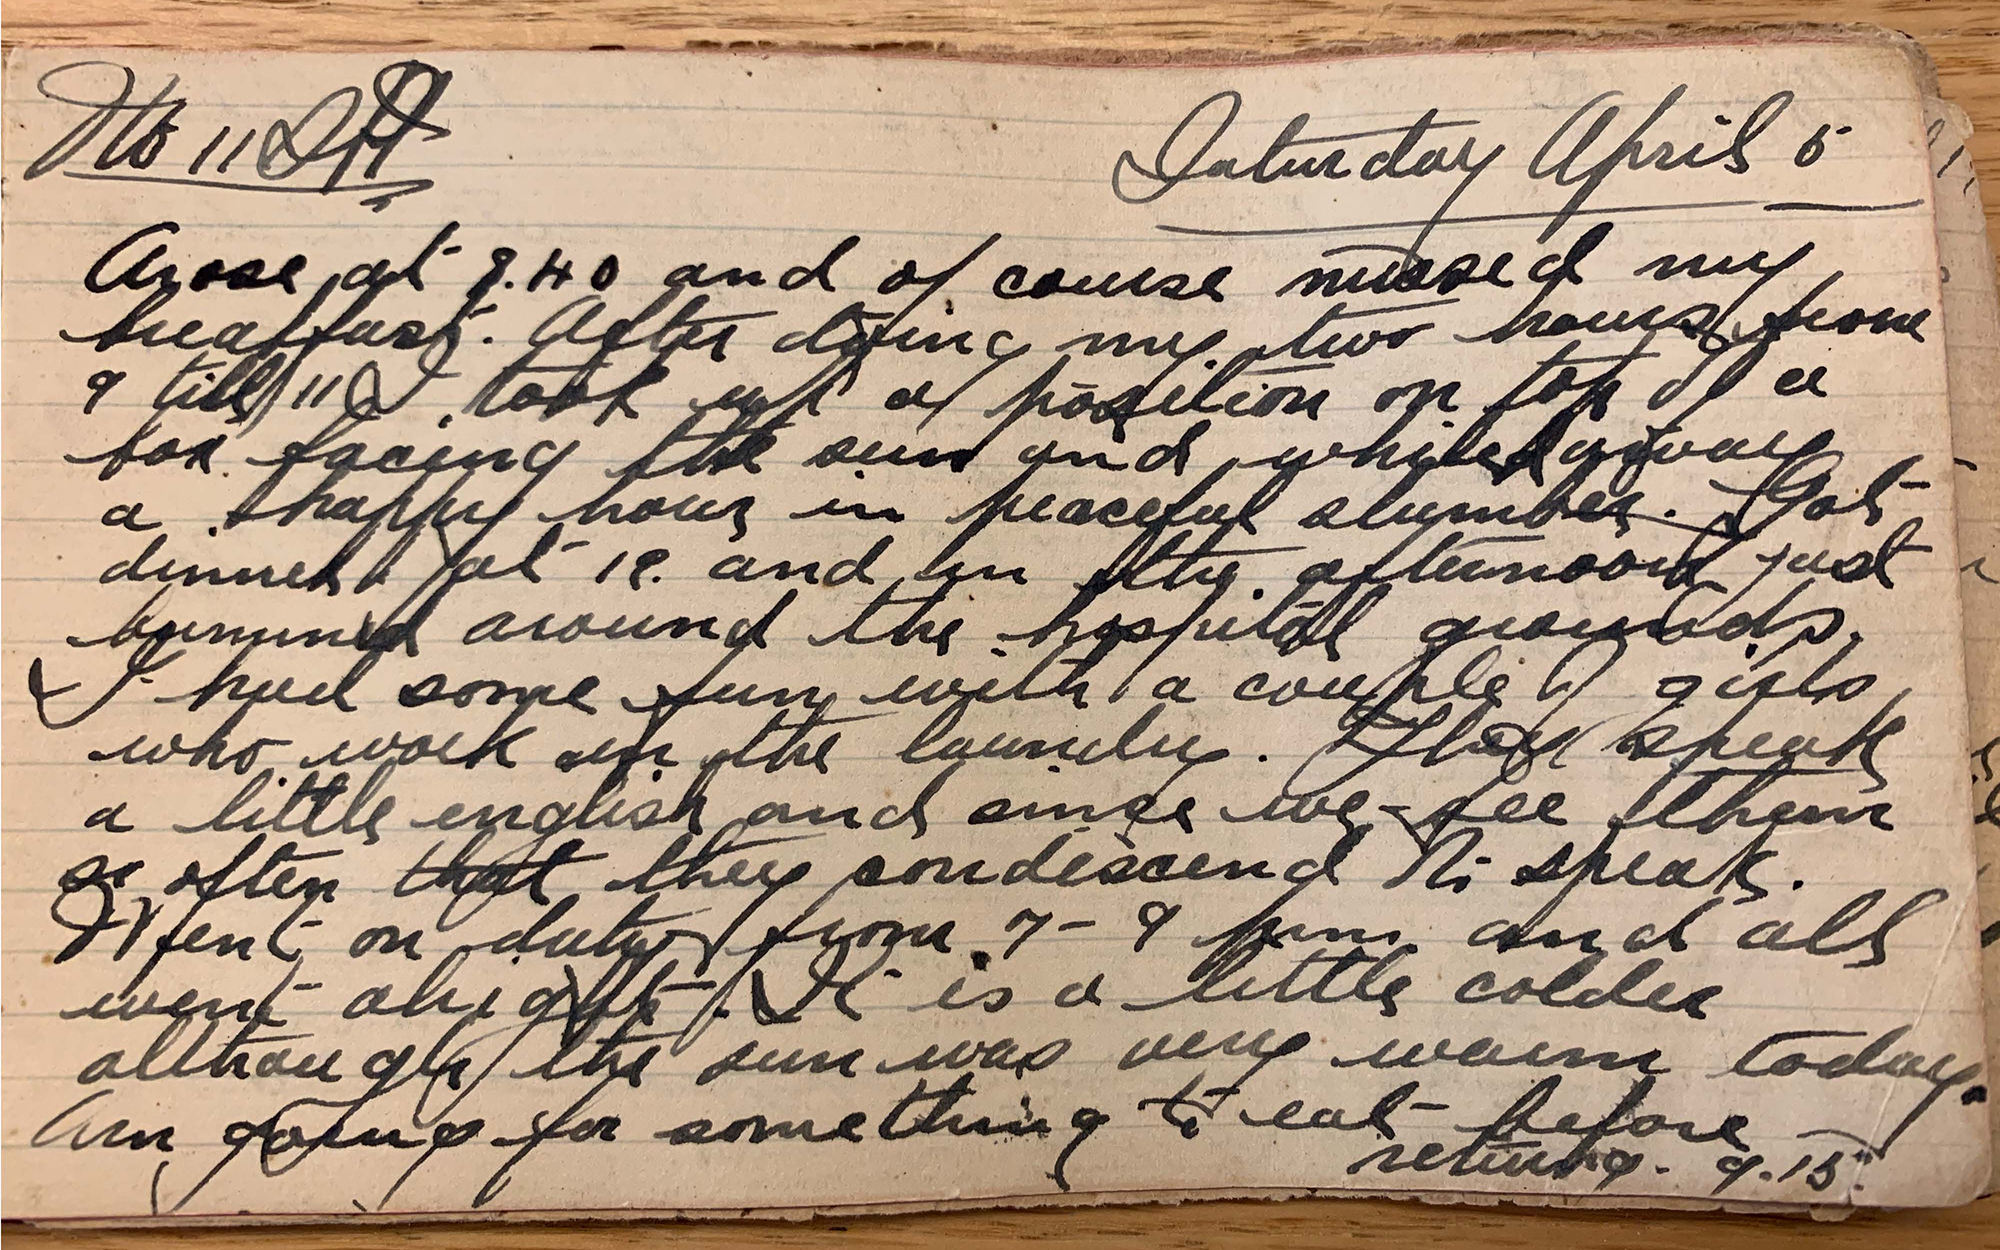 No 11 Saturday April 5
Arose at 8.40 and of course missed my
breakfast. After doing my two hours from
9 till 11 I took up a position on top of a
box facing the sun and whiled away
a happy hour in peaceful slumber. Got
dinner at 12. and in the afternoon just
bummed around the hospital grounds.
I had some fun with a couple of girls
who work in the laundry. They speak
a little english and since we see them
so often that they condescend to speak.
Went on duty from 7-9 p.m. and all
went alright. It is a little colder
although the sun was very warm today.
Am going for something to eat before
retiring. 9.15.